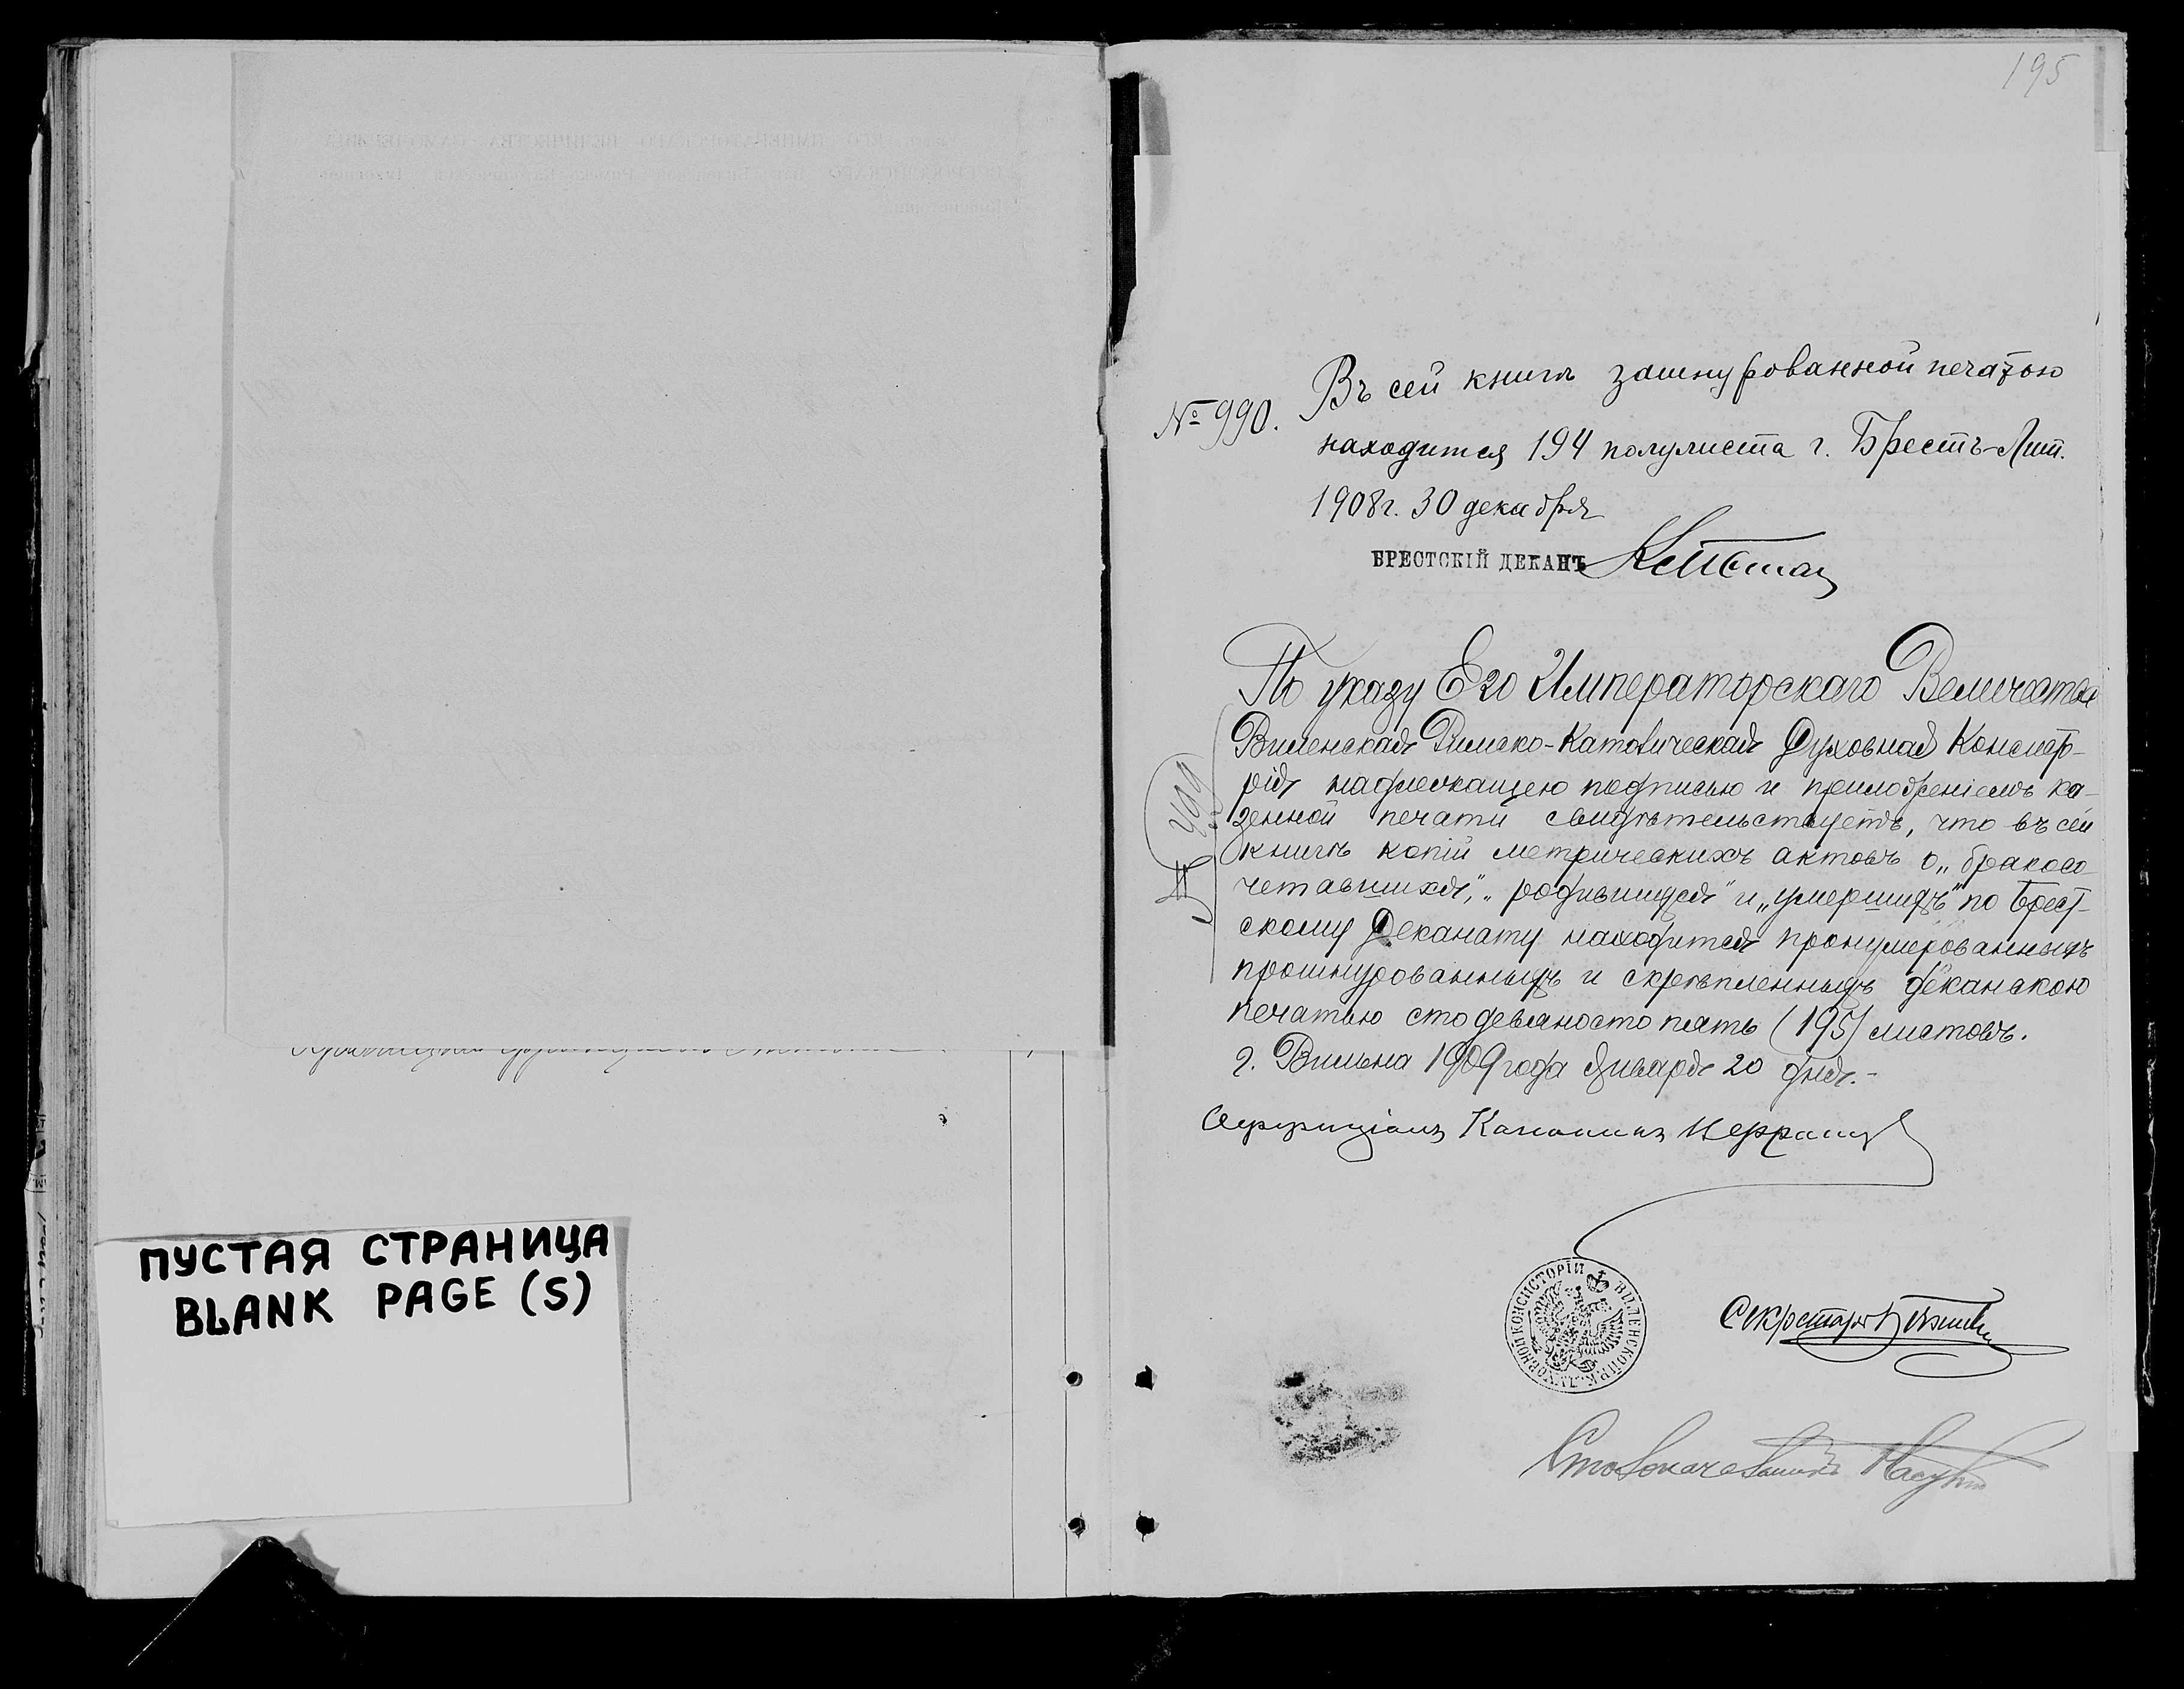 195
№ 990.
Въ сей книгѣ зашнурованной печатью
находится 194 полулиста г. Брестъ-Лит.
1908 г. 30 декабря
БРЕСТСКІЙ ДЕКАНЪ
По указу Его Императорскаго Величества
Виленская Римско-Католическая Духовная Консисто-
рія надлежащею подписью и приложеніемъ ка-
зенной печати свидѣтельствуетъ, что въ сей
книгѣ копій метрическихъ актовъ о „бракосо-
четавшихся“, „родившихся“ и „умершихъ“ по Брест-
скому Деканату находится пронумерованныхъ
прошнурованныхъ и скрѣпленныхъ деканскою
печатью сто девяносто пять (195) листовъ.
г. Вильна 1909 года Января 20 дня.-
Оффиціалъ Каноникъ
ВИЛЕНСКОЙ Р. К. ДУХОВНОЙ КОНСИСТОРІИ
Секретарь
Столоначальникъ
ПУСТАЯ СТРАНИЦА
BLANK PAGE (S)